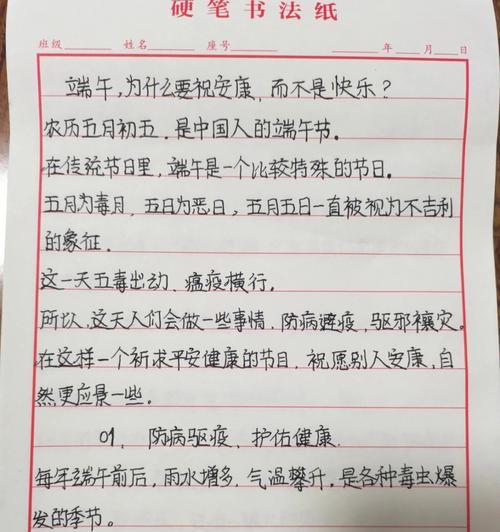 硬笔书法纸
班级 姓名 座号 年 月 日
端午,为什么要祝安康,而不是快乐?
农历五月初五,是中国人的端午节。
在传统节日里,端午是一个比较特殊的节日。
五月为毒月,五日为恶日,五月五日一直被视为不吉利
的象征.
这一天五毒出动、瘟疫横行。
所以,这天人们会做一些事情,防病避疫,驱邪禳灾。
在这样一个祈求平安健康的节日,祝愿别人安康,自
然更应景一些。
01、防病驱疫、护佑健康.
每年端午前后,雨水增多,气温攀升,是各种毒虫爆
发的季节。